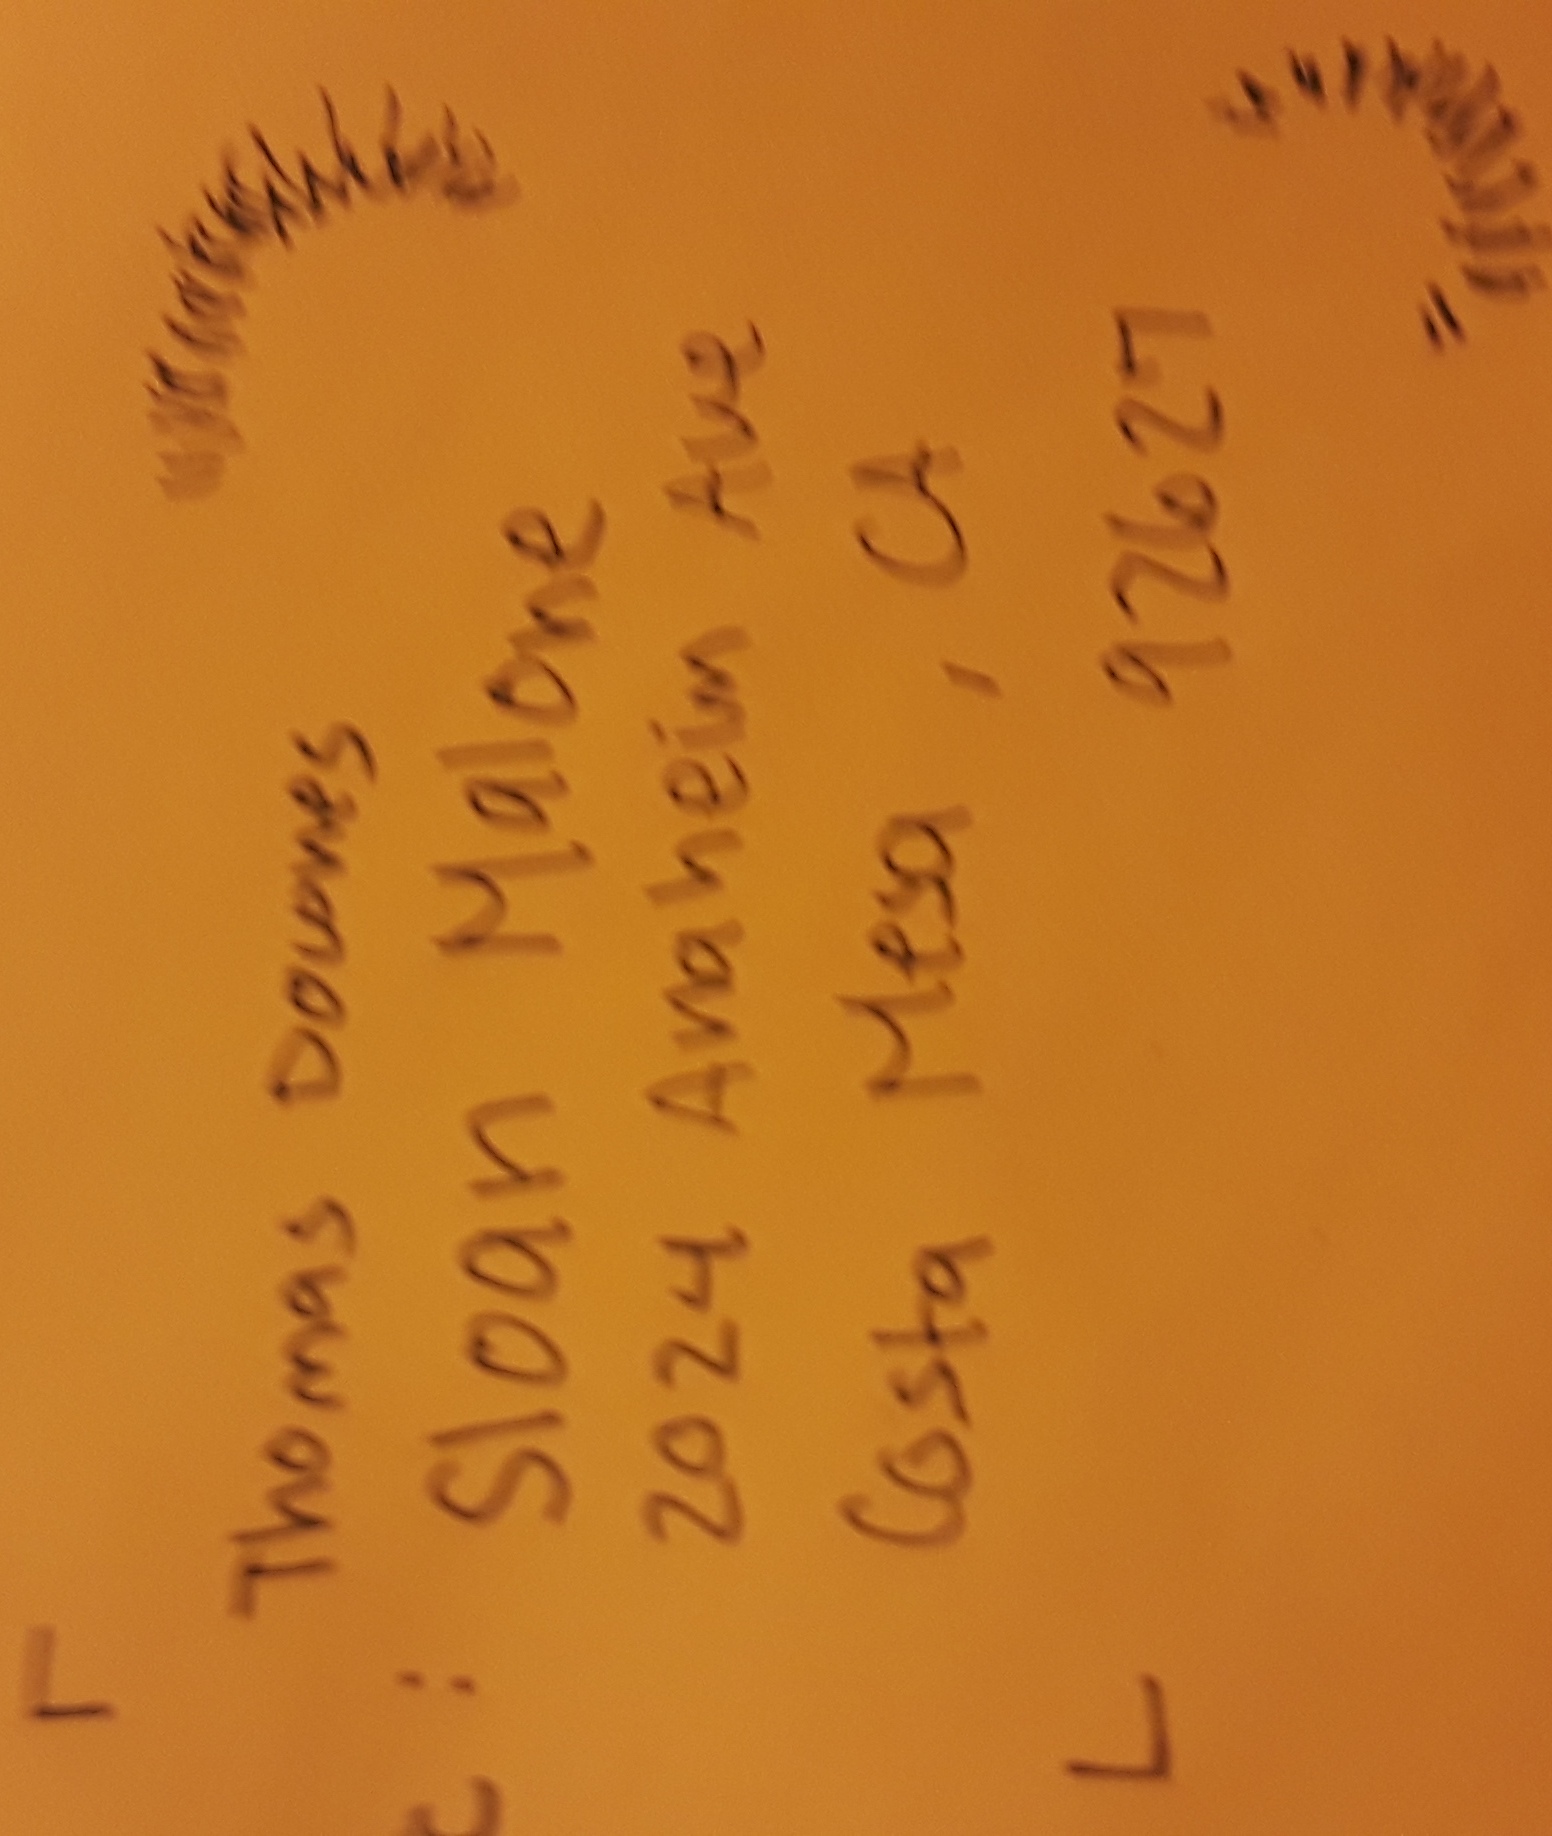 Thomas Downes
: Sloan Malone
2024 Anaheim Ave
Costa Mesa, CA
92627